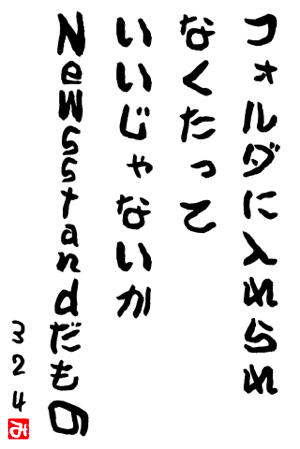 フォルダに入れられ
なくたって
いいじゃないか
Newsstandだもの
324
み